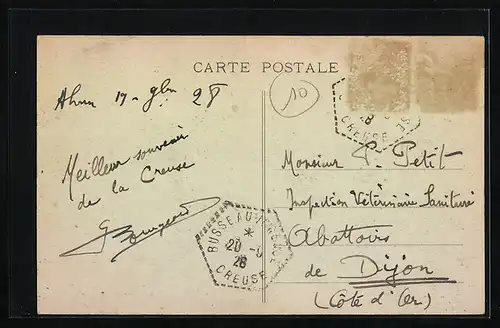 CARTE POSTALE
10
Ahun 19 - 9bre 28
Meilleur souvenir
de la Creuse
Monsieur P. Petit
Inspection Vétérinaire Sanitaire
Abattoirs
de Dijon
(Côte d'Or)
CREUSE
28
BUSSEAU-CREUSE
*
20 -9
28
CREUSE